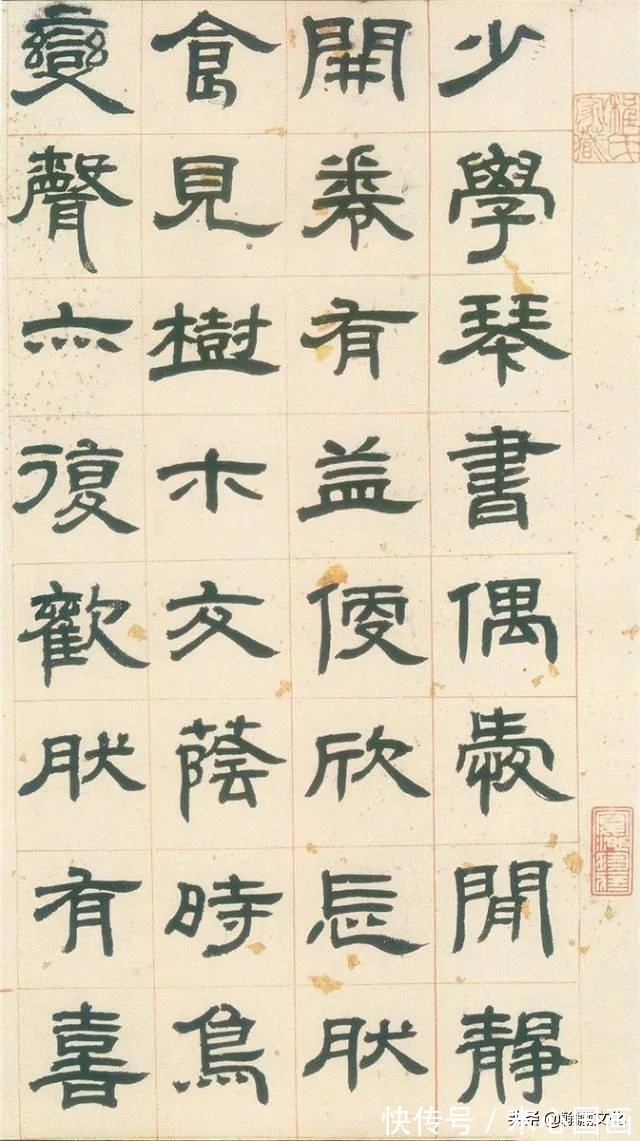 少學琴書偶愛閒靜
開卷有益便欣忘肰
食見樹木交蔭時鳥
變聲亦復歡肰有喜
快传号
头条